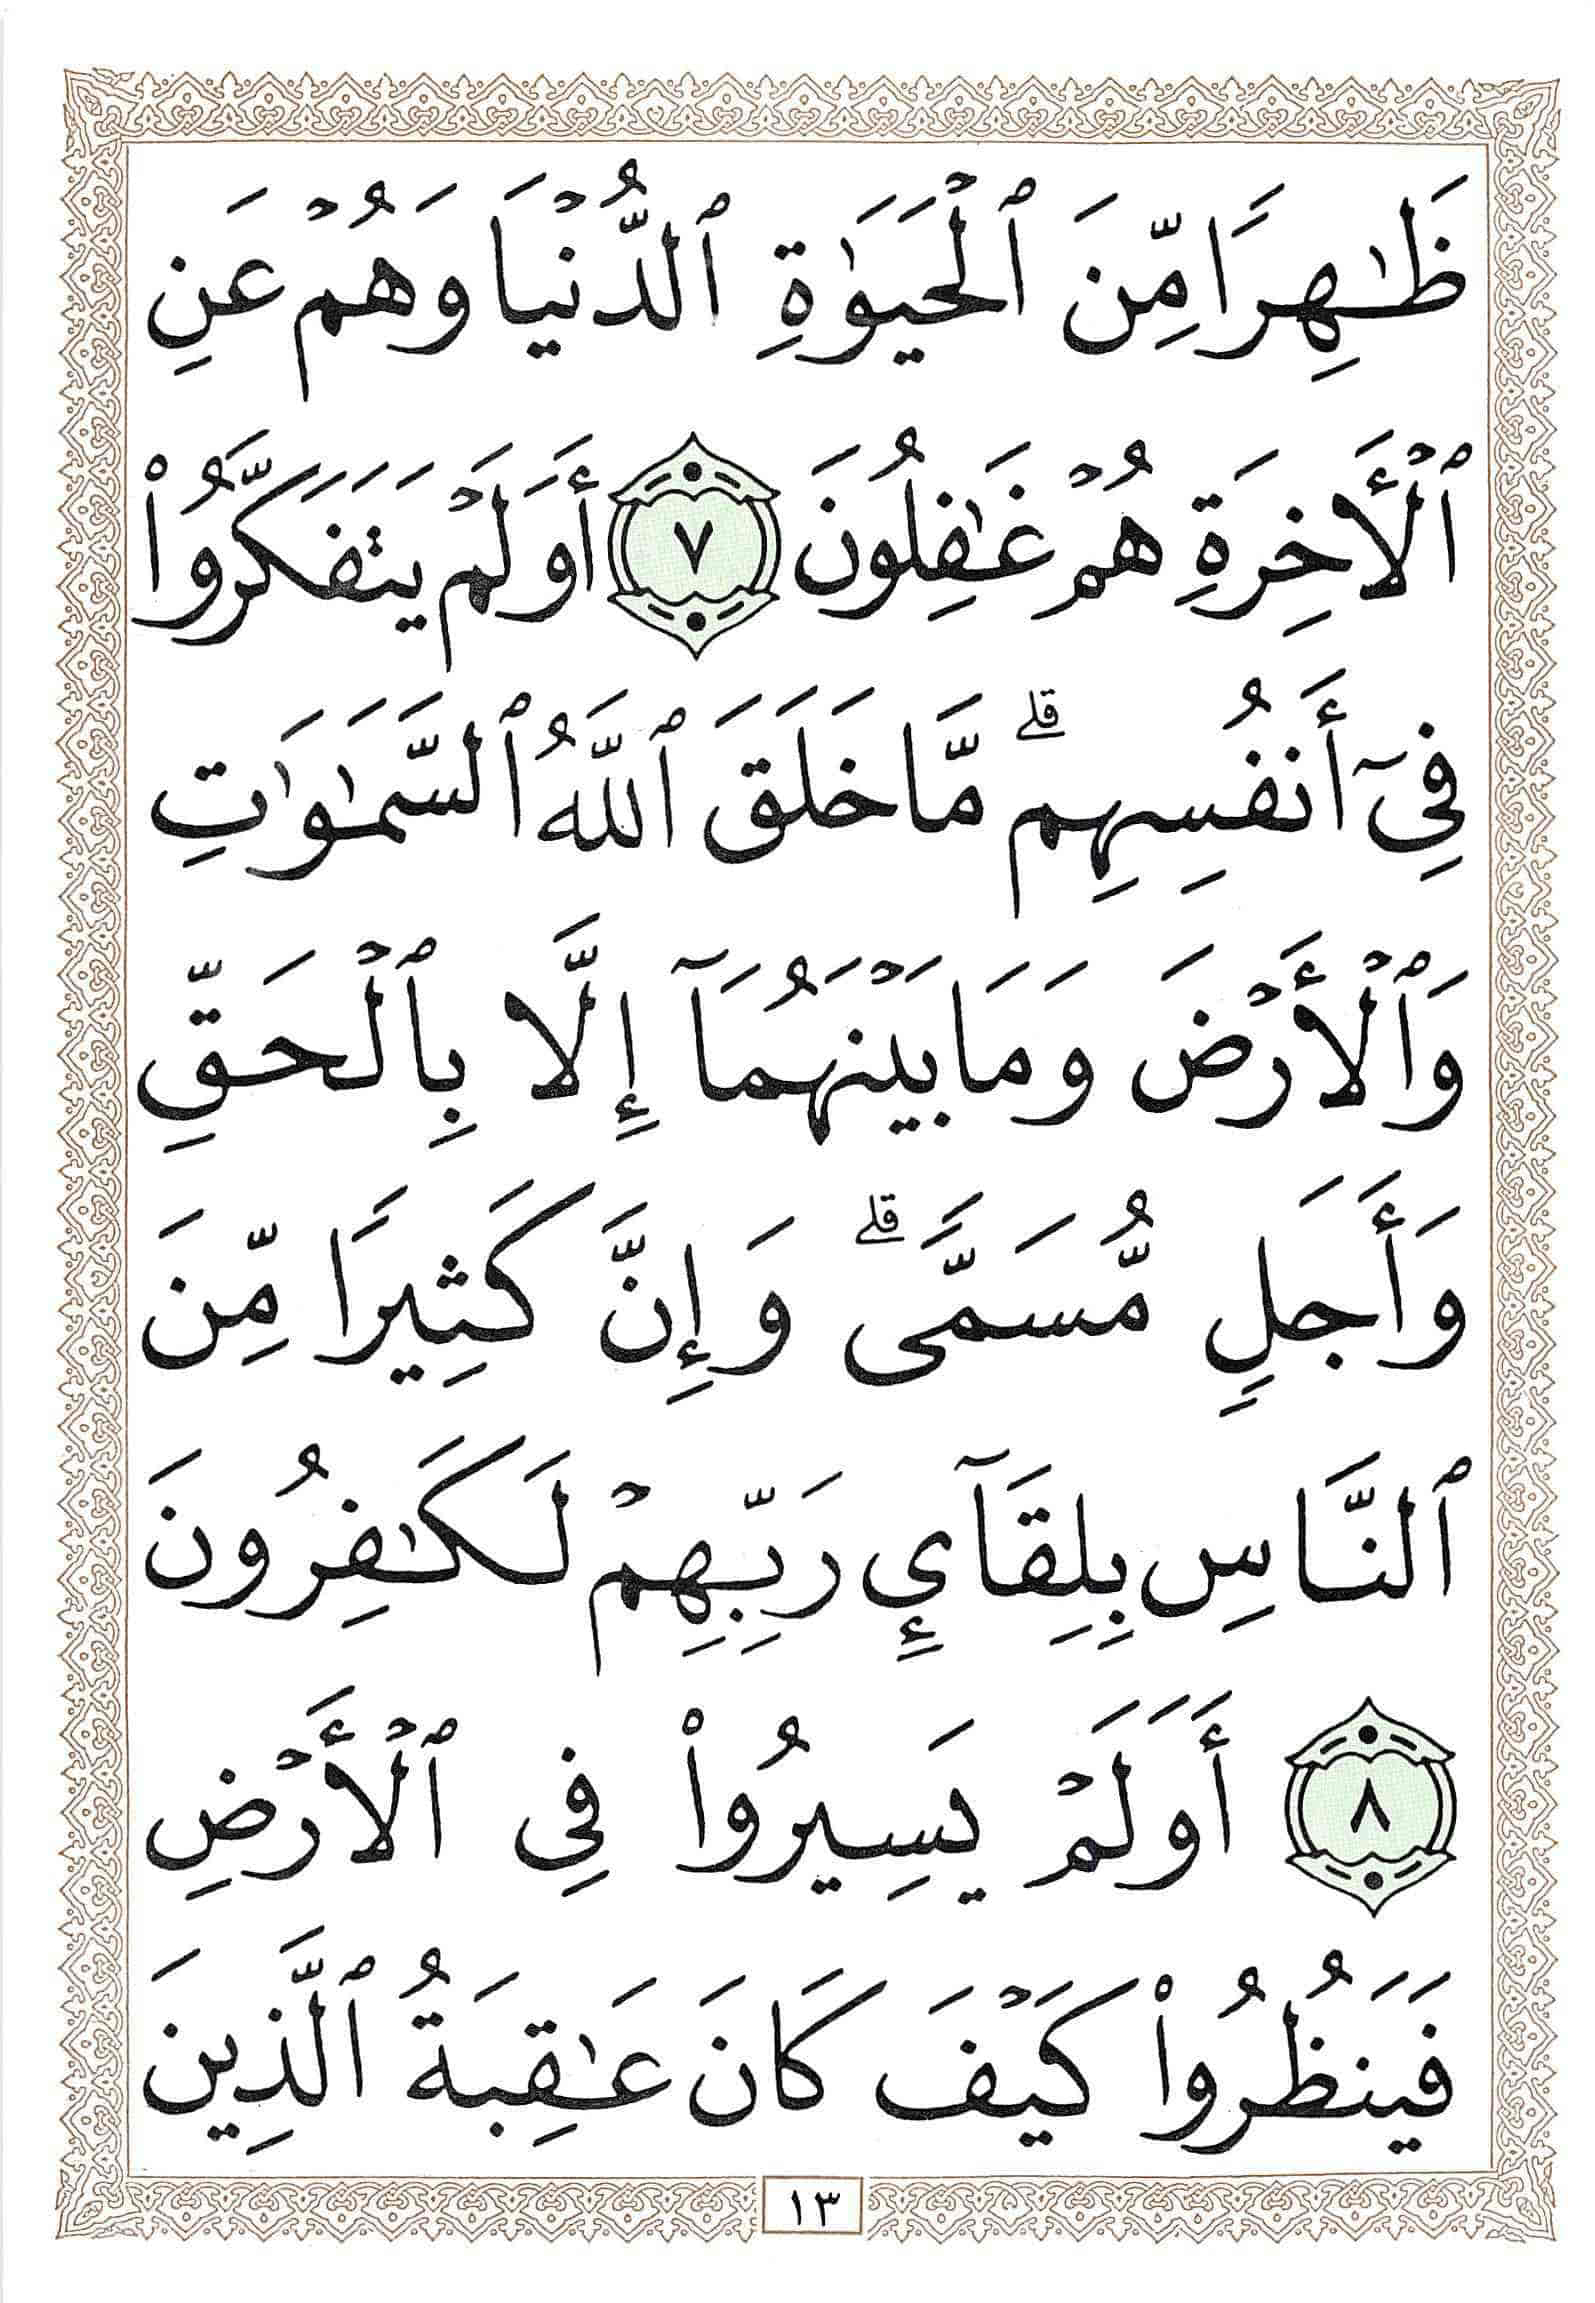 ظَٰهِرًا مِّنَ ٱلْحَيَوٰةِ ٱلدُّنْيَا وَهُمْ عَنِ
ٱلْأَخِرَةِ هُمْ غَٰفِلُونَ ٧ أَوَلَمْ يَتَفَكَّرُوا۟
فِىٓ أَنفُسِهِم ۗ مَّا خَلَقَ ٱللَّهُ ٱلسَّمَٰوَٰتِ
وَٱلْأَرْضَ وَمَا بَيْنَهُمَآ إِلَّا بِٱلْحَقِّ
وَأَجَلٍ مُّسَمًّى ۗ وَإِنَّ كَثِيرًا مِّنَ
ٱلنَّاسِ بِلِقَآئِ رَبِّهِمْ لَكَٰفِرُونَ
٨ أَوَلَمْ يَسِيرُوا۟ فِى ٱلْأَرْضِ
فَيَنظُرُوا۟ كَيْفَ كَانَ عَٰقِبَةُ ٱلَّذِينَ
١٣